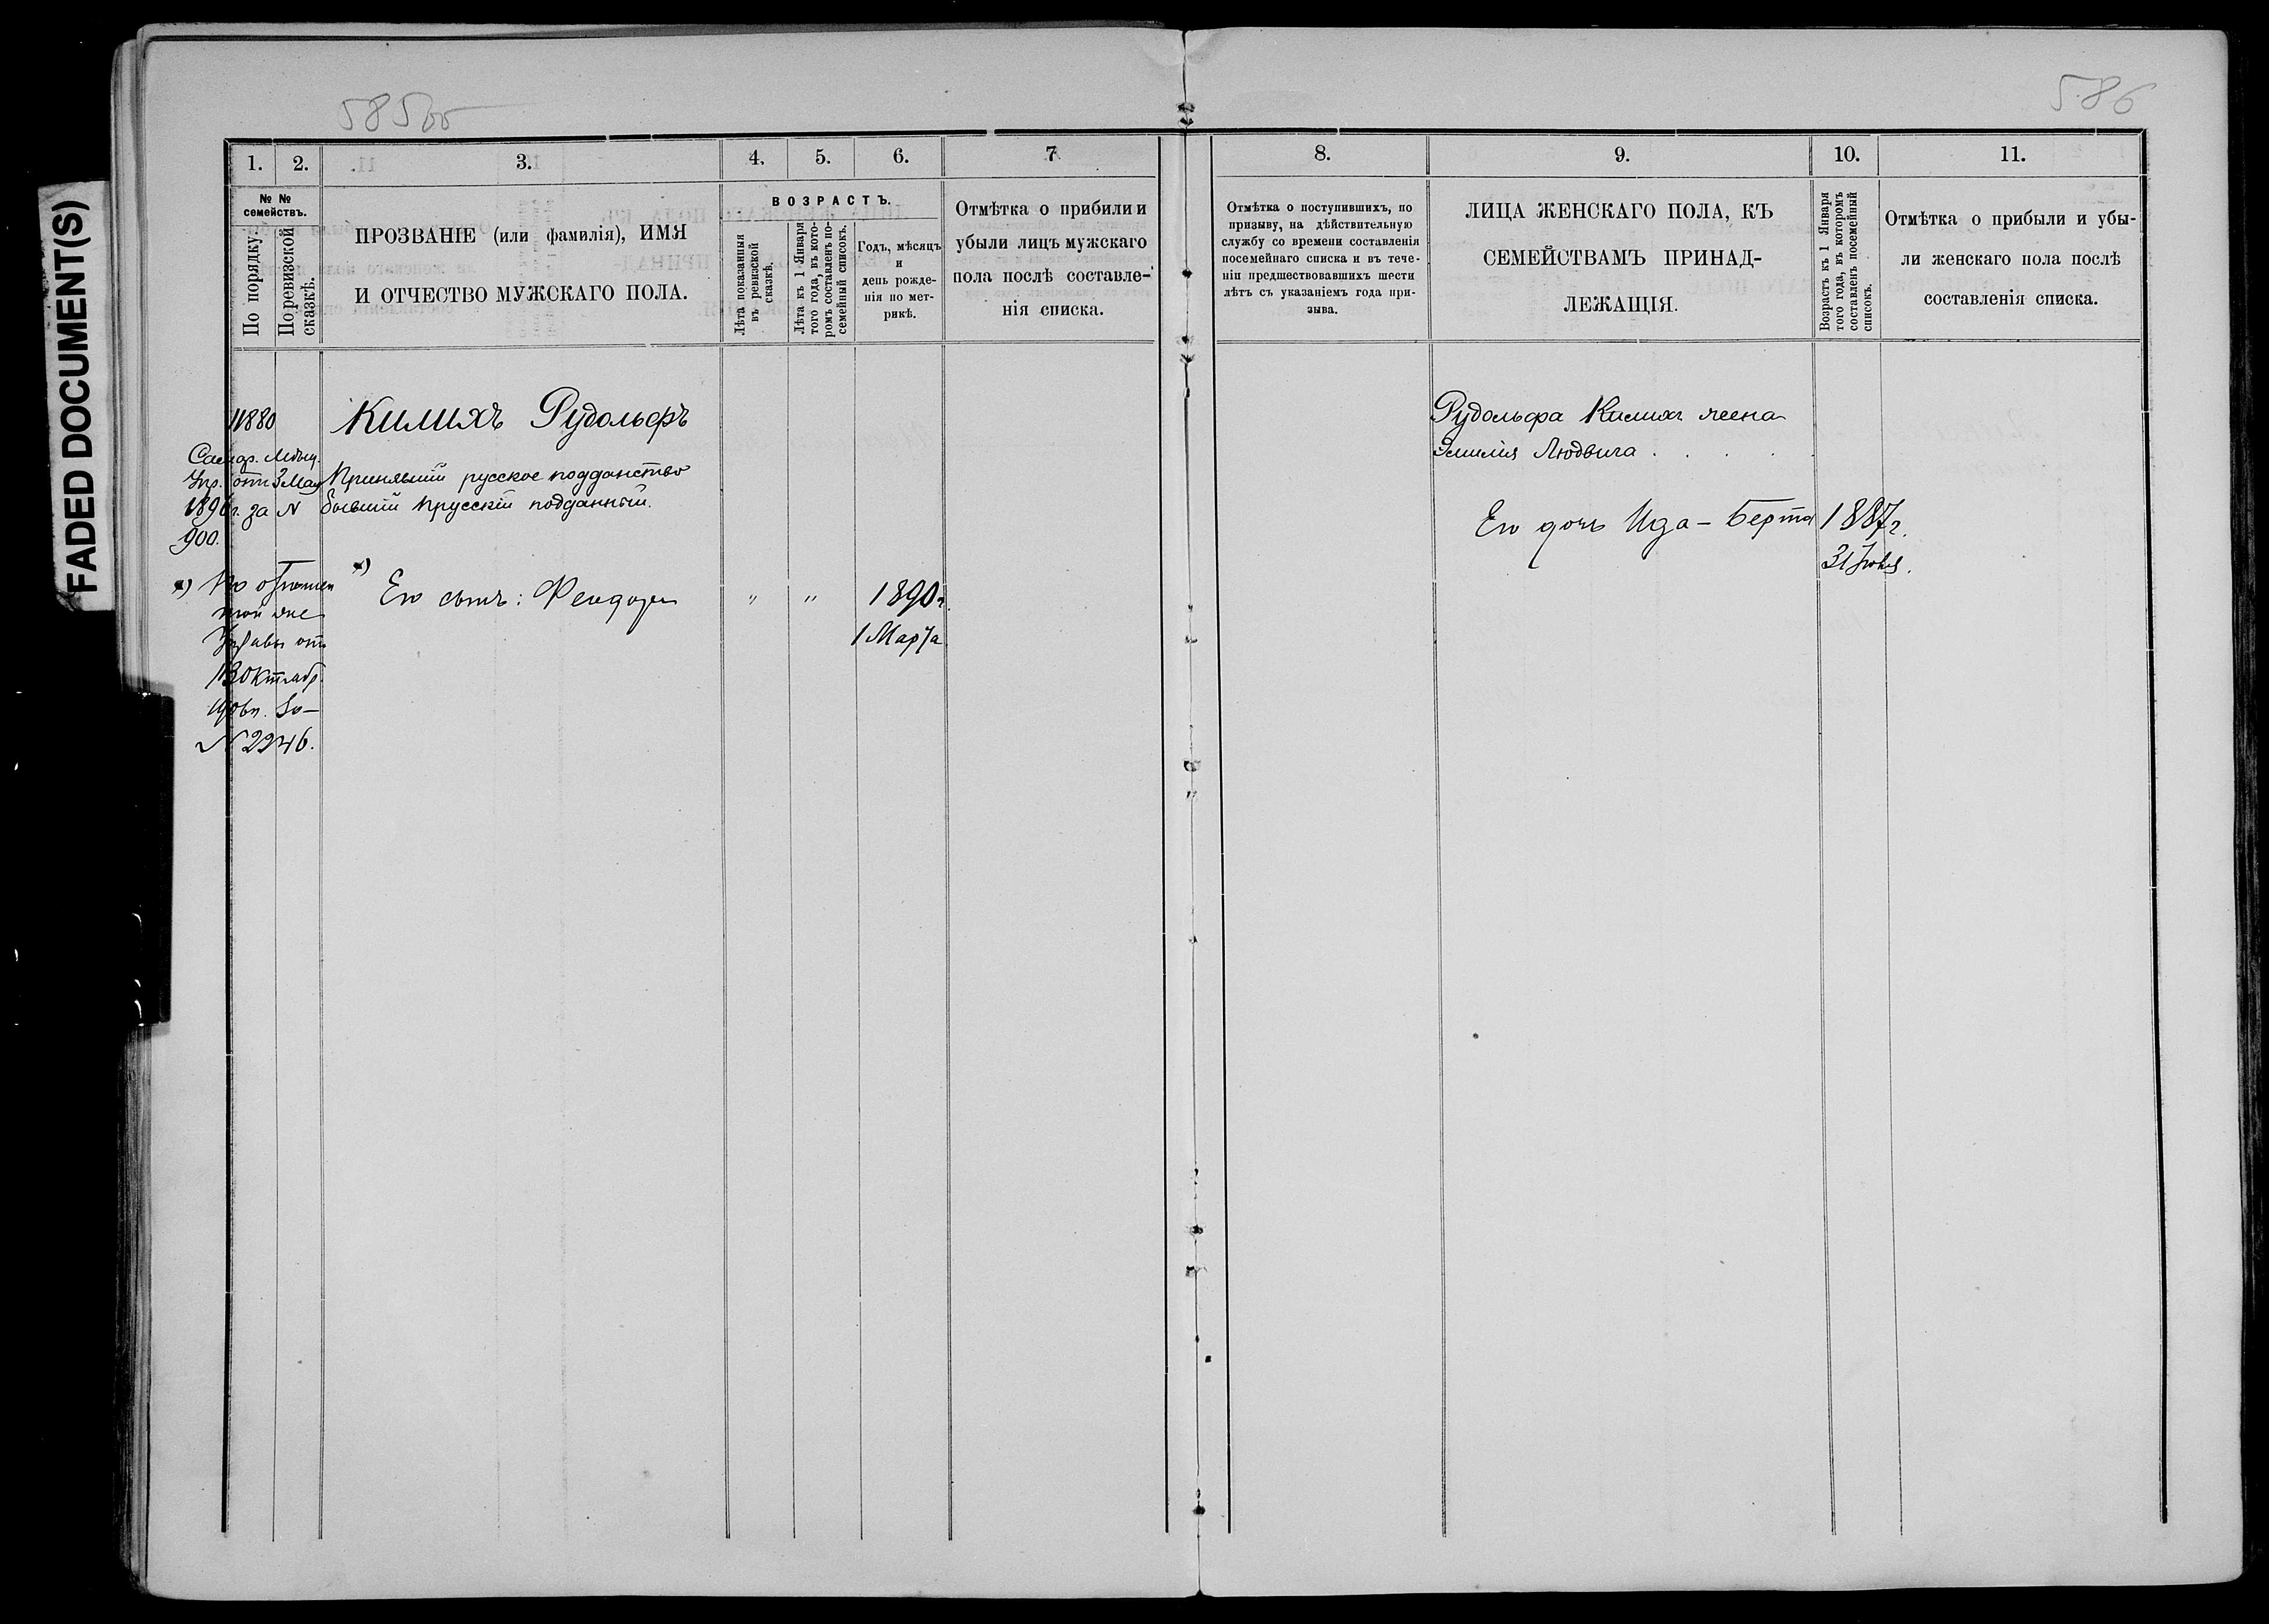 FADED DOCUMENT(S)
585об
586
1. 2. 3. 4. 5. 6. 7
№ № семействъ.
По порядку.
По ревизской сказкѣ.
ПРОЗВАНІЕ (или фамилія), ИМЯ
И ОТЧЕСТВО МУЖСКАГО ПОЛА.
ВОЗРАСТЪ.
Лѣта показанныя
въ ревизской
сказкѣ.
Лѣта къ 1 Января
того года, въ кото-
ромъ составленъ по-
семейный списокъ.
Годъ, мѣсяцъ
и
день рожде-
нія по мет-
рикѣ.
Отмѣтка о прибыли и
убыли лицъ мужскаго
пола послѣ составле-
нія списка.
8. 9. 10. 11.
Отмѣтка о поступившихъ, по
призыву, на дѣйствительную
службу со времени составленія
посемейнаго списка и въ тече-
ніи предшествовавшихъ шести
лѣтъ съ указаніемъ года при-
зыва.
ЛИЦА ЖЕНСКАГО ПОЛА, КЪ
СЕМЕЙСТВАМЪ ПРИНАД-
ЛЕЖАЩІЯ.
Возрастъ къ 1 Января
того года, въ которомъ
составленъ посемейный
списокъ.
Отмѣтка о прибыли и убы-
ли женскаго пола послѣ
составленія списка.
11880 Килихъ Рудольфъ
Принявшій русское подданство
бывшій прусскій подданный.
Упр. отъ 3 Мая
за N
900.
x) Его сынъ: " " 1890г.
1 Марта
x) По
той же
Управы отъ
13 Октябр.
N 2246.
Рудольфа Килихъ жена
Эмилія Людвига . . . .
Его дочь Ида-Берта 1887г.
31